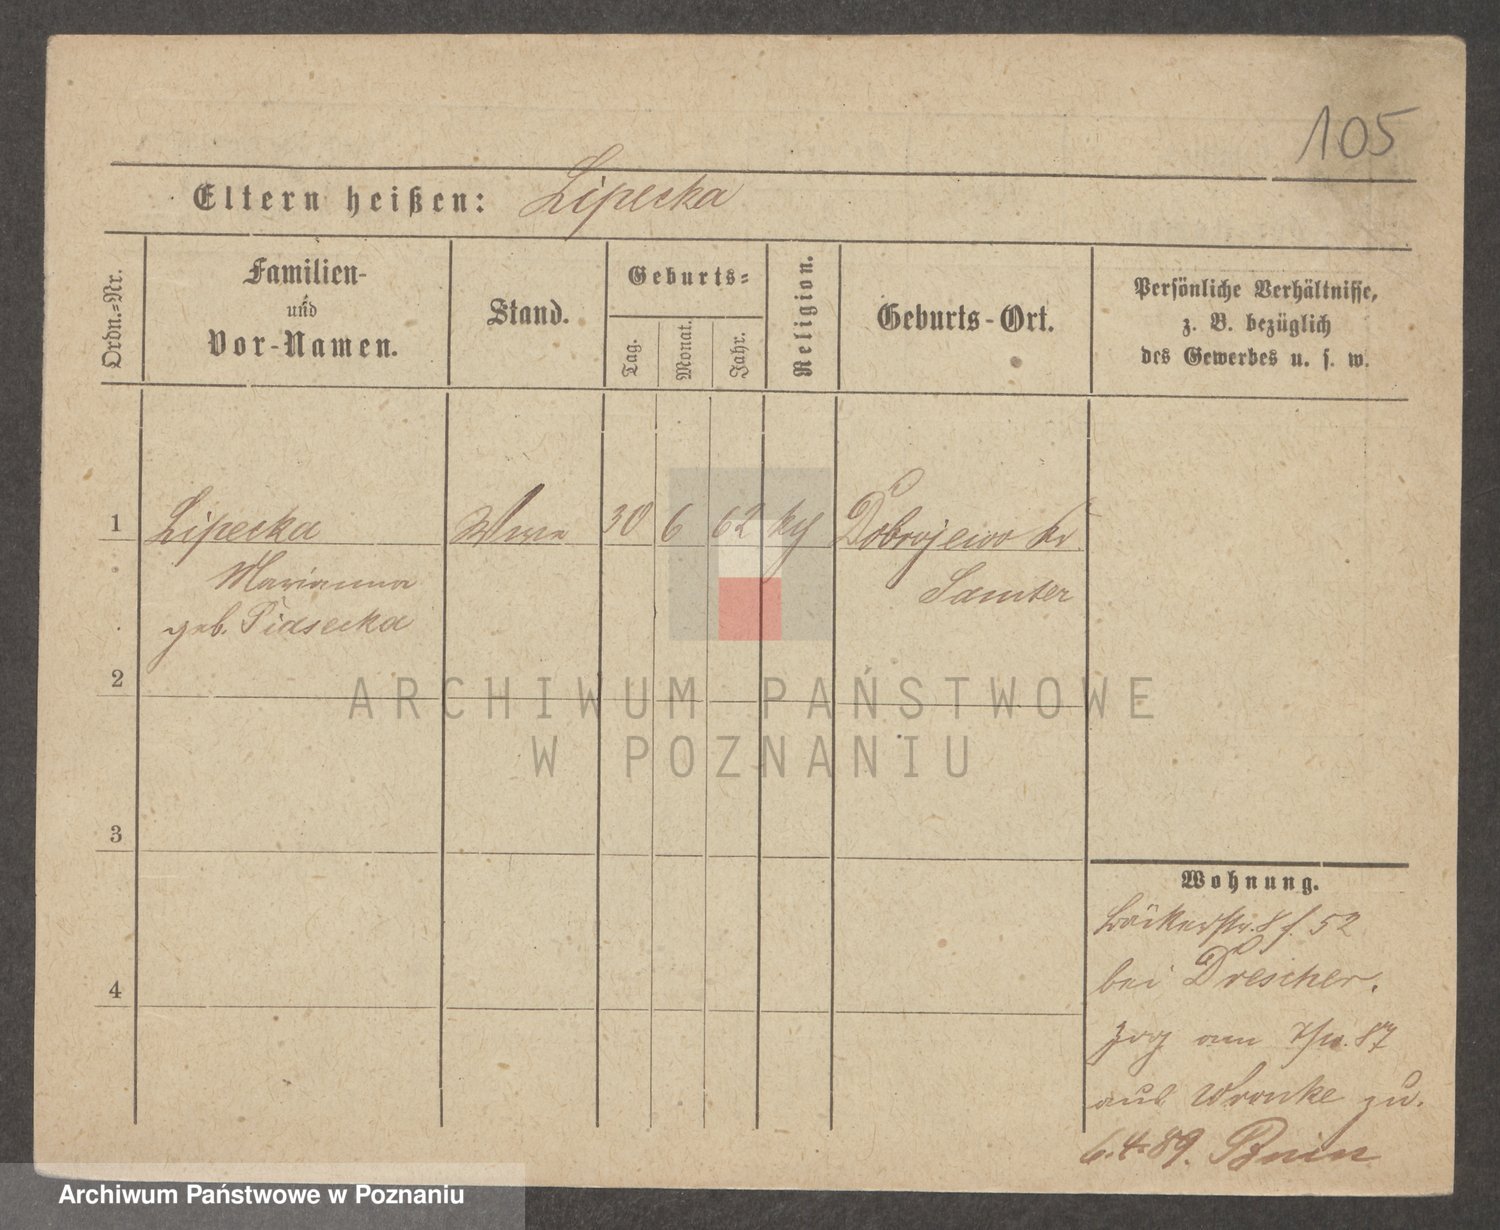 105
Eltern heißen: Lipecka
Ordn.=Nr.
Familien-
und
Vor-Namen.
Stand.
Geburts=
Tag.
Monat.
Jahr.
Religion.
Geburts-Ort.
Persönliche Verhältnisse,
z. B. bezüglich
des Gewerbes u. s. w.
1 Lipecka 30 6 62 Dobrojewo Kr
Marianna Samter
geb. Piasecka
2
3
4
ARCHIWUM PAŃSTWOWE
W POZNANIU
Wohnung.
Bäckerstr. 8 f. 52
bei Drescher.
Zog am 87
aus Wronke zu.
6.4.89. Bnin
Archiwum Państwowe w Poznaniu